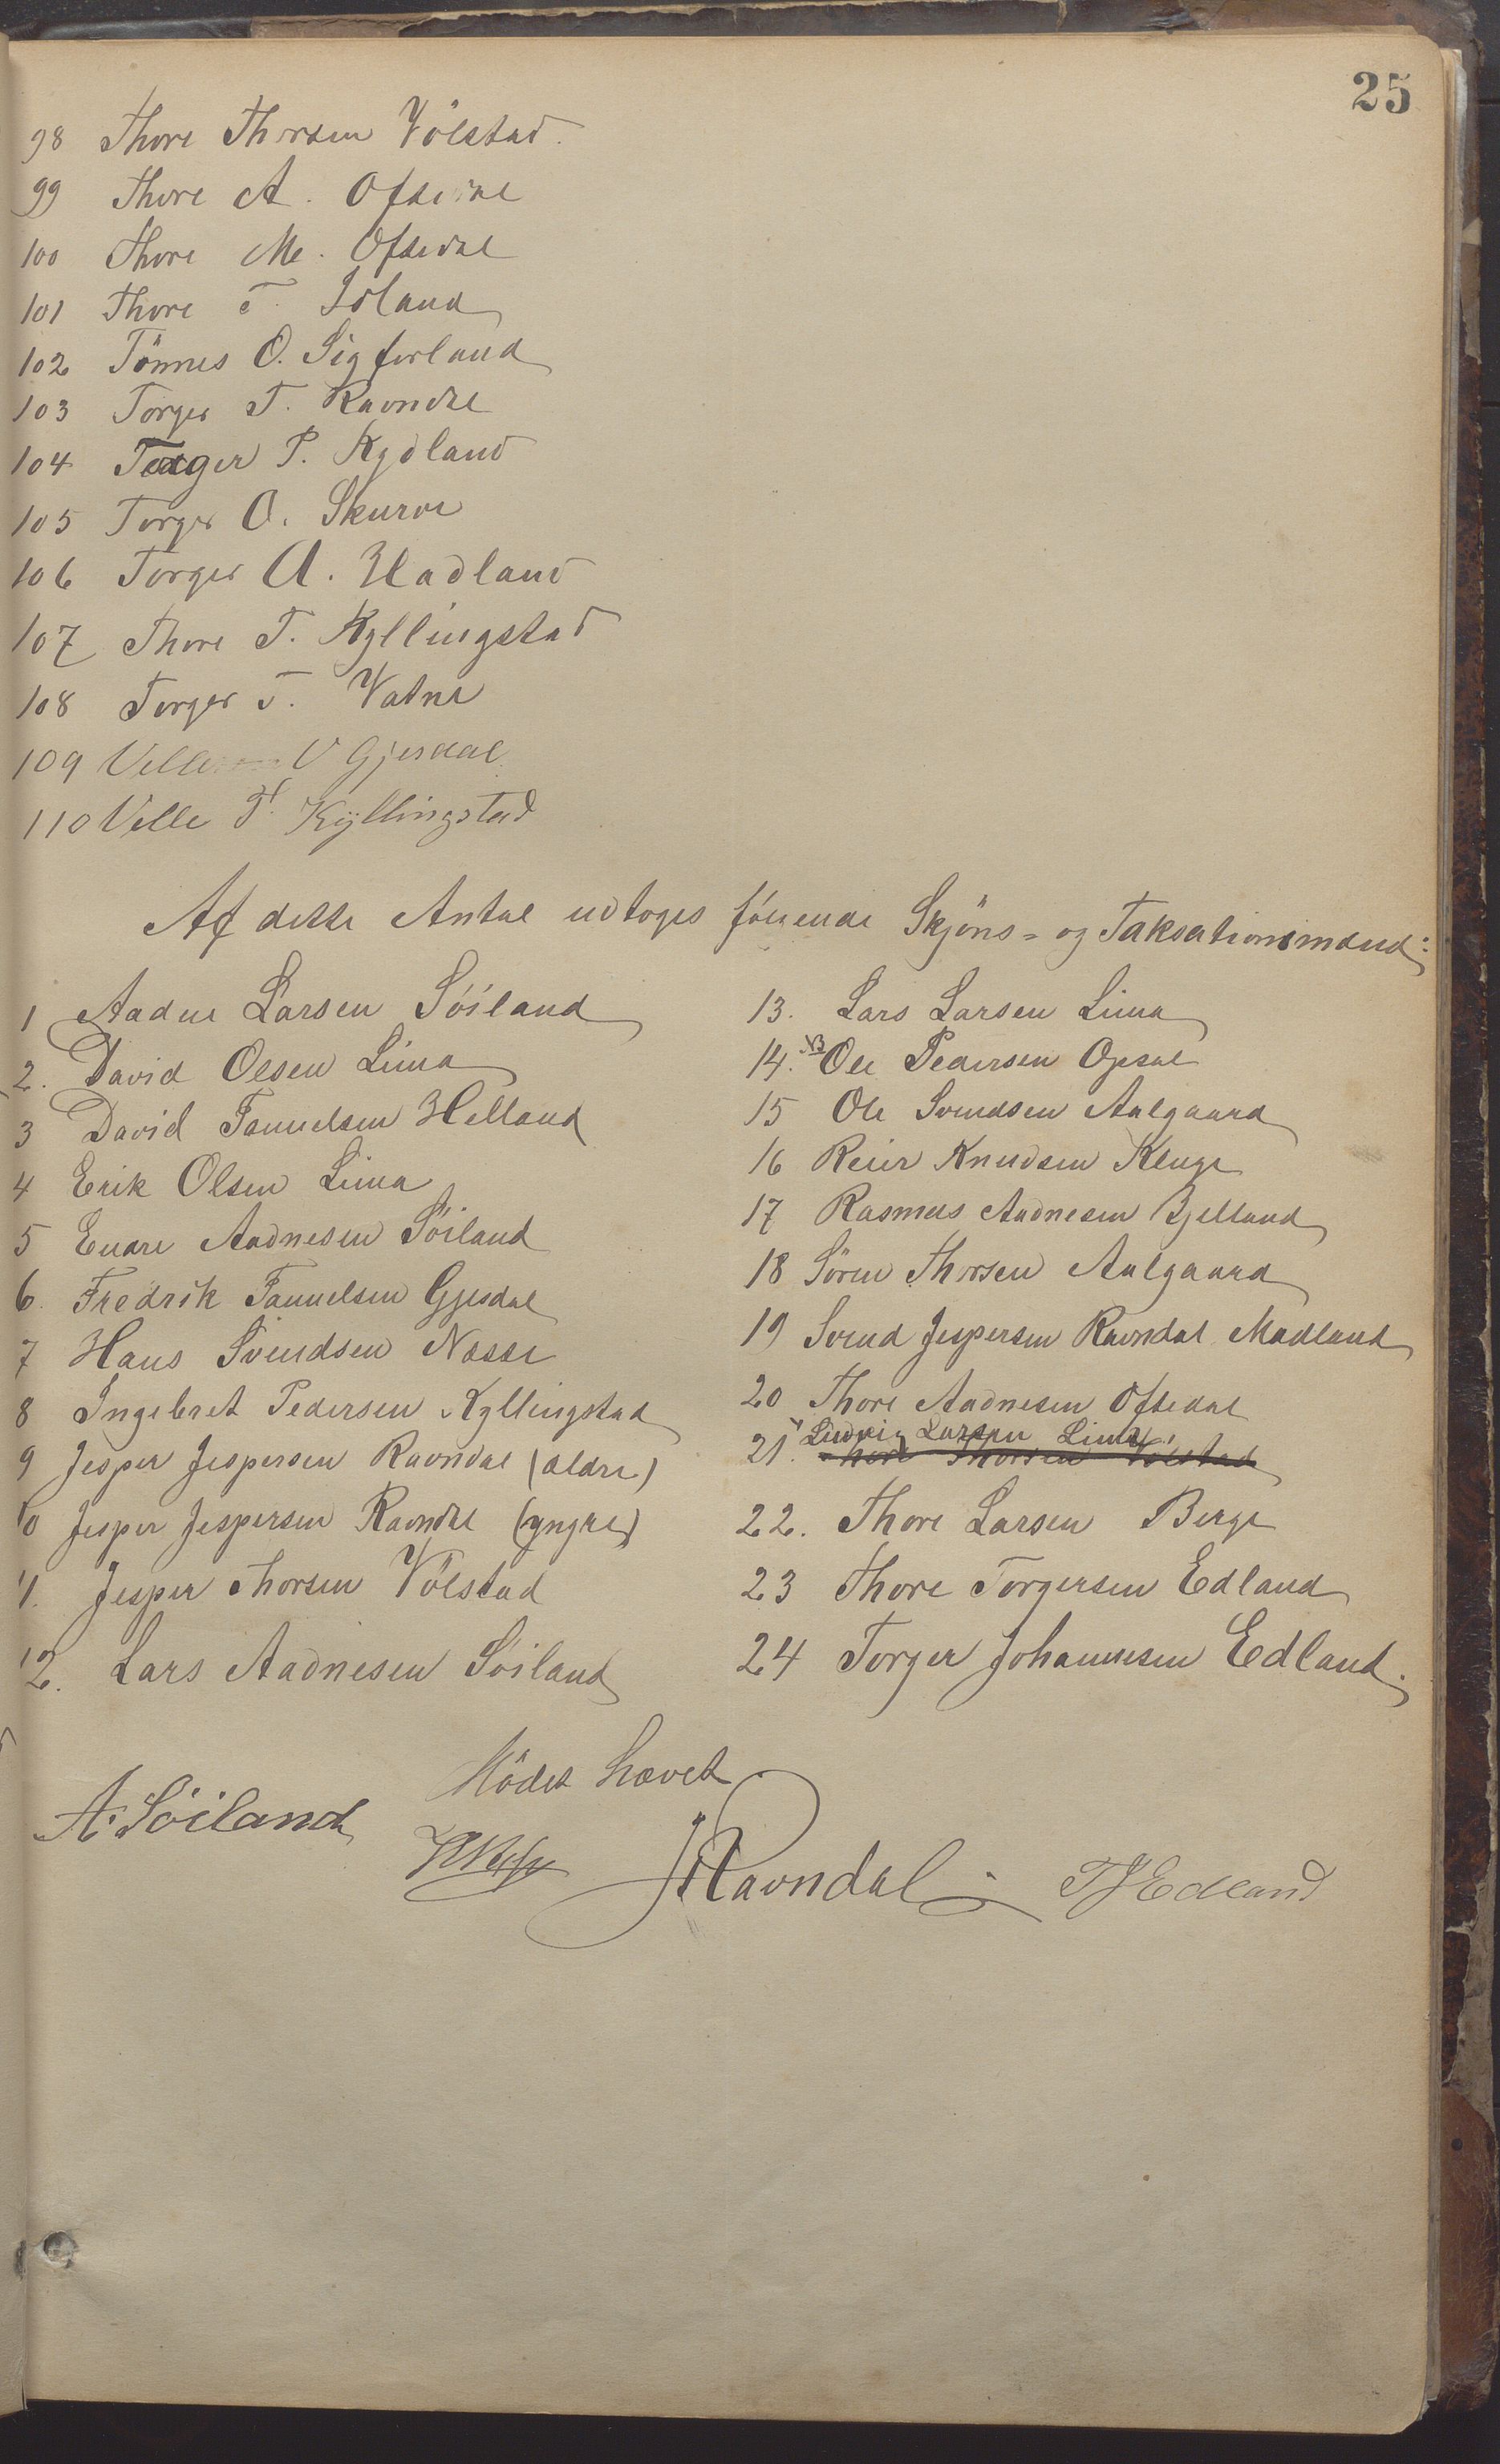 25
98 Thore Thorsen Völstad.
99 Thore A. Oftedal
100 Thore M. Oftedal
101 Thore T. Joland
102 Tönnes O. Sigferland
103 Torger T. Ravndal
104 Torger P. Kydland
105 Torger O. Skurve
106 Torger A. Hadland
107 Thore T. Kyllingstad
108 Torger T. Vatne
109 Velle V Gjesdal
110 Velle T. Kyllingstad
Af dette Antal udtoges fölgende Skjöns- og Taksationsmænd:
1 Aadne Larsen Söiland
2. David Olsen Lima
3 David Tanuelsen Helland
4 Erik Olsen Lima
5 Endre Aadnesen Söiland
6. Fredrik Fanuelsen Gjesdal
7 Hans Svendsen Næsse
8 Ingebret Pedersen Kyllingstad
9 Jesper Jespersen Ravndal (ældre)
10 Jesper Jespersen Ravndal (yngre)
11. Jesper Thorsen Völstad
12. Lars Aadnesen Söiland
13. Lars Larsen Lima
14. NB Ole Pedersen Opsal
15 Ole Svendsen Aalgaard
16 Reier Knudsen Kluge
17 Rasmus Aadnesen Bjelland
18 Sören Thorsen Aalgaard
19 Svend Jespersen Ravndal Madland
20 Thore Aadnesen Oftedal
Ludvig Larsen Lima
21. Thore Thorsen Völstad
22. Thore Larsen Berge
23 Thore Torgersen Edland
24 Torger Johannesen Edland.
Mödet hævet.
A. Söiland
J Ravndal
T J Edland